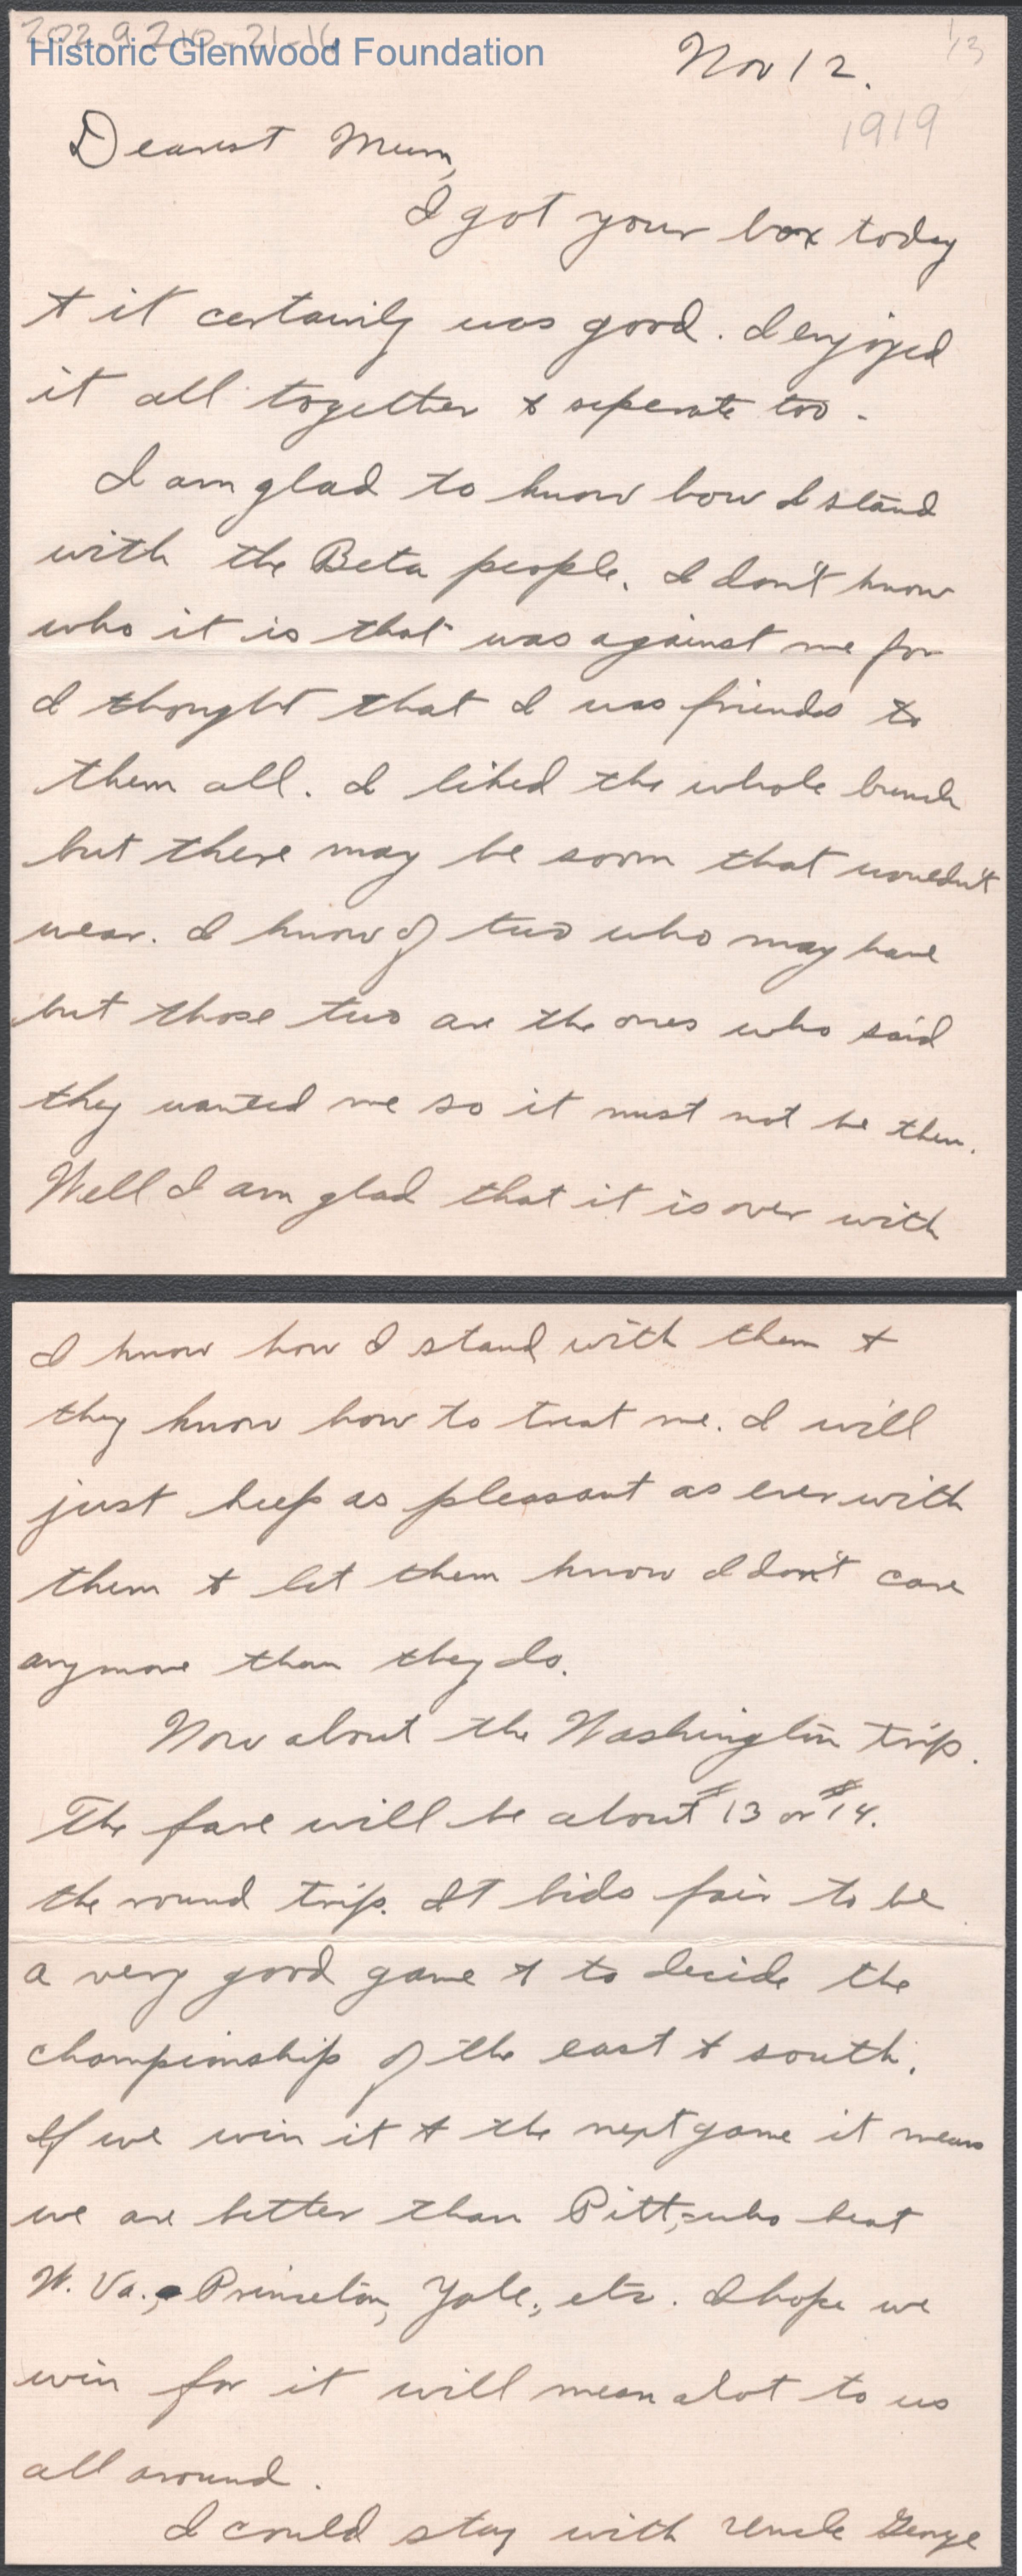 202-9210-21-16
Historic Glenwood Foundation
1/3
Nov 12.
1919
Dearest Mum,
I got your box today
+ it certainly was good. I enjoyed
it all together + seperate too.
I am glad to know how I stand
with the Beta people. I don't know
who it is that was against me for
I thought that I was friends to
them all. I liked the whole bunch
but there may be som that wouldn't
wear. I know of two who may have
but those two are the ones who said
they wanted me so it must not be them.
Well I am glad that it is over with
I know how I stand with them +
they know how to treat me. I will
just keep as pleasant as ever with
them + let them know I don't care
anymore than they do.
Now about the Washington trip.
The fare will be about $13 or $14.
the round trip. It bids fair to be
a very good game + to decide the
championship of the east + south.
If we win it + the next game it means
we are better than Pitt, who beat
W. Va., Princeton, Yale, etc. I hope we
win for it will mean alot to us
all around.
I could stay with Uncle George